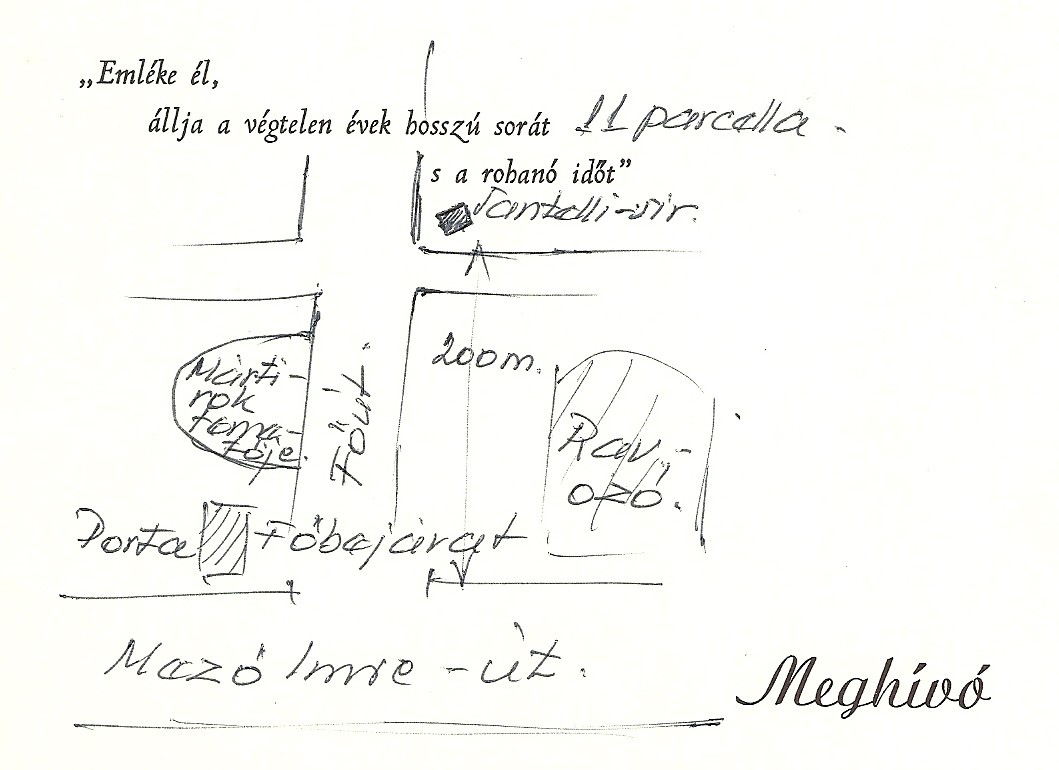 „Emléke él,
állja a végtelen évek hosszú sorát
11 parcella.
s a rohanó időt”
Pantelli-sir.
200m.
Márti-
rok
Főút.
Rav.-
ozó.
Porta
Főbejárat
Mazó Imre-út.
Meghívó